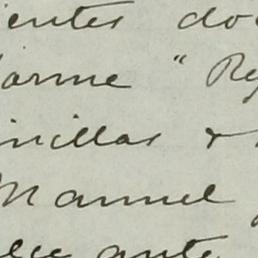 ientes do
arme " Re
inillas &
Manuel
ante